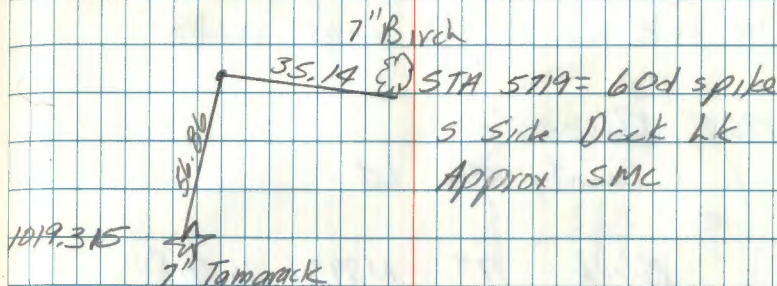 7" Birch
35.14
STA 5719 = 60d spike
S Side Duck Lk
Approx SMC
56.86
1019.315
7" Tamarack